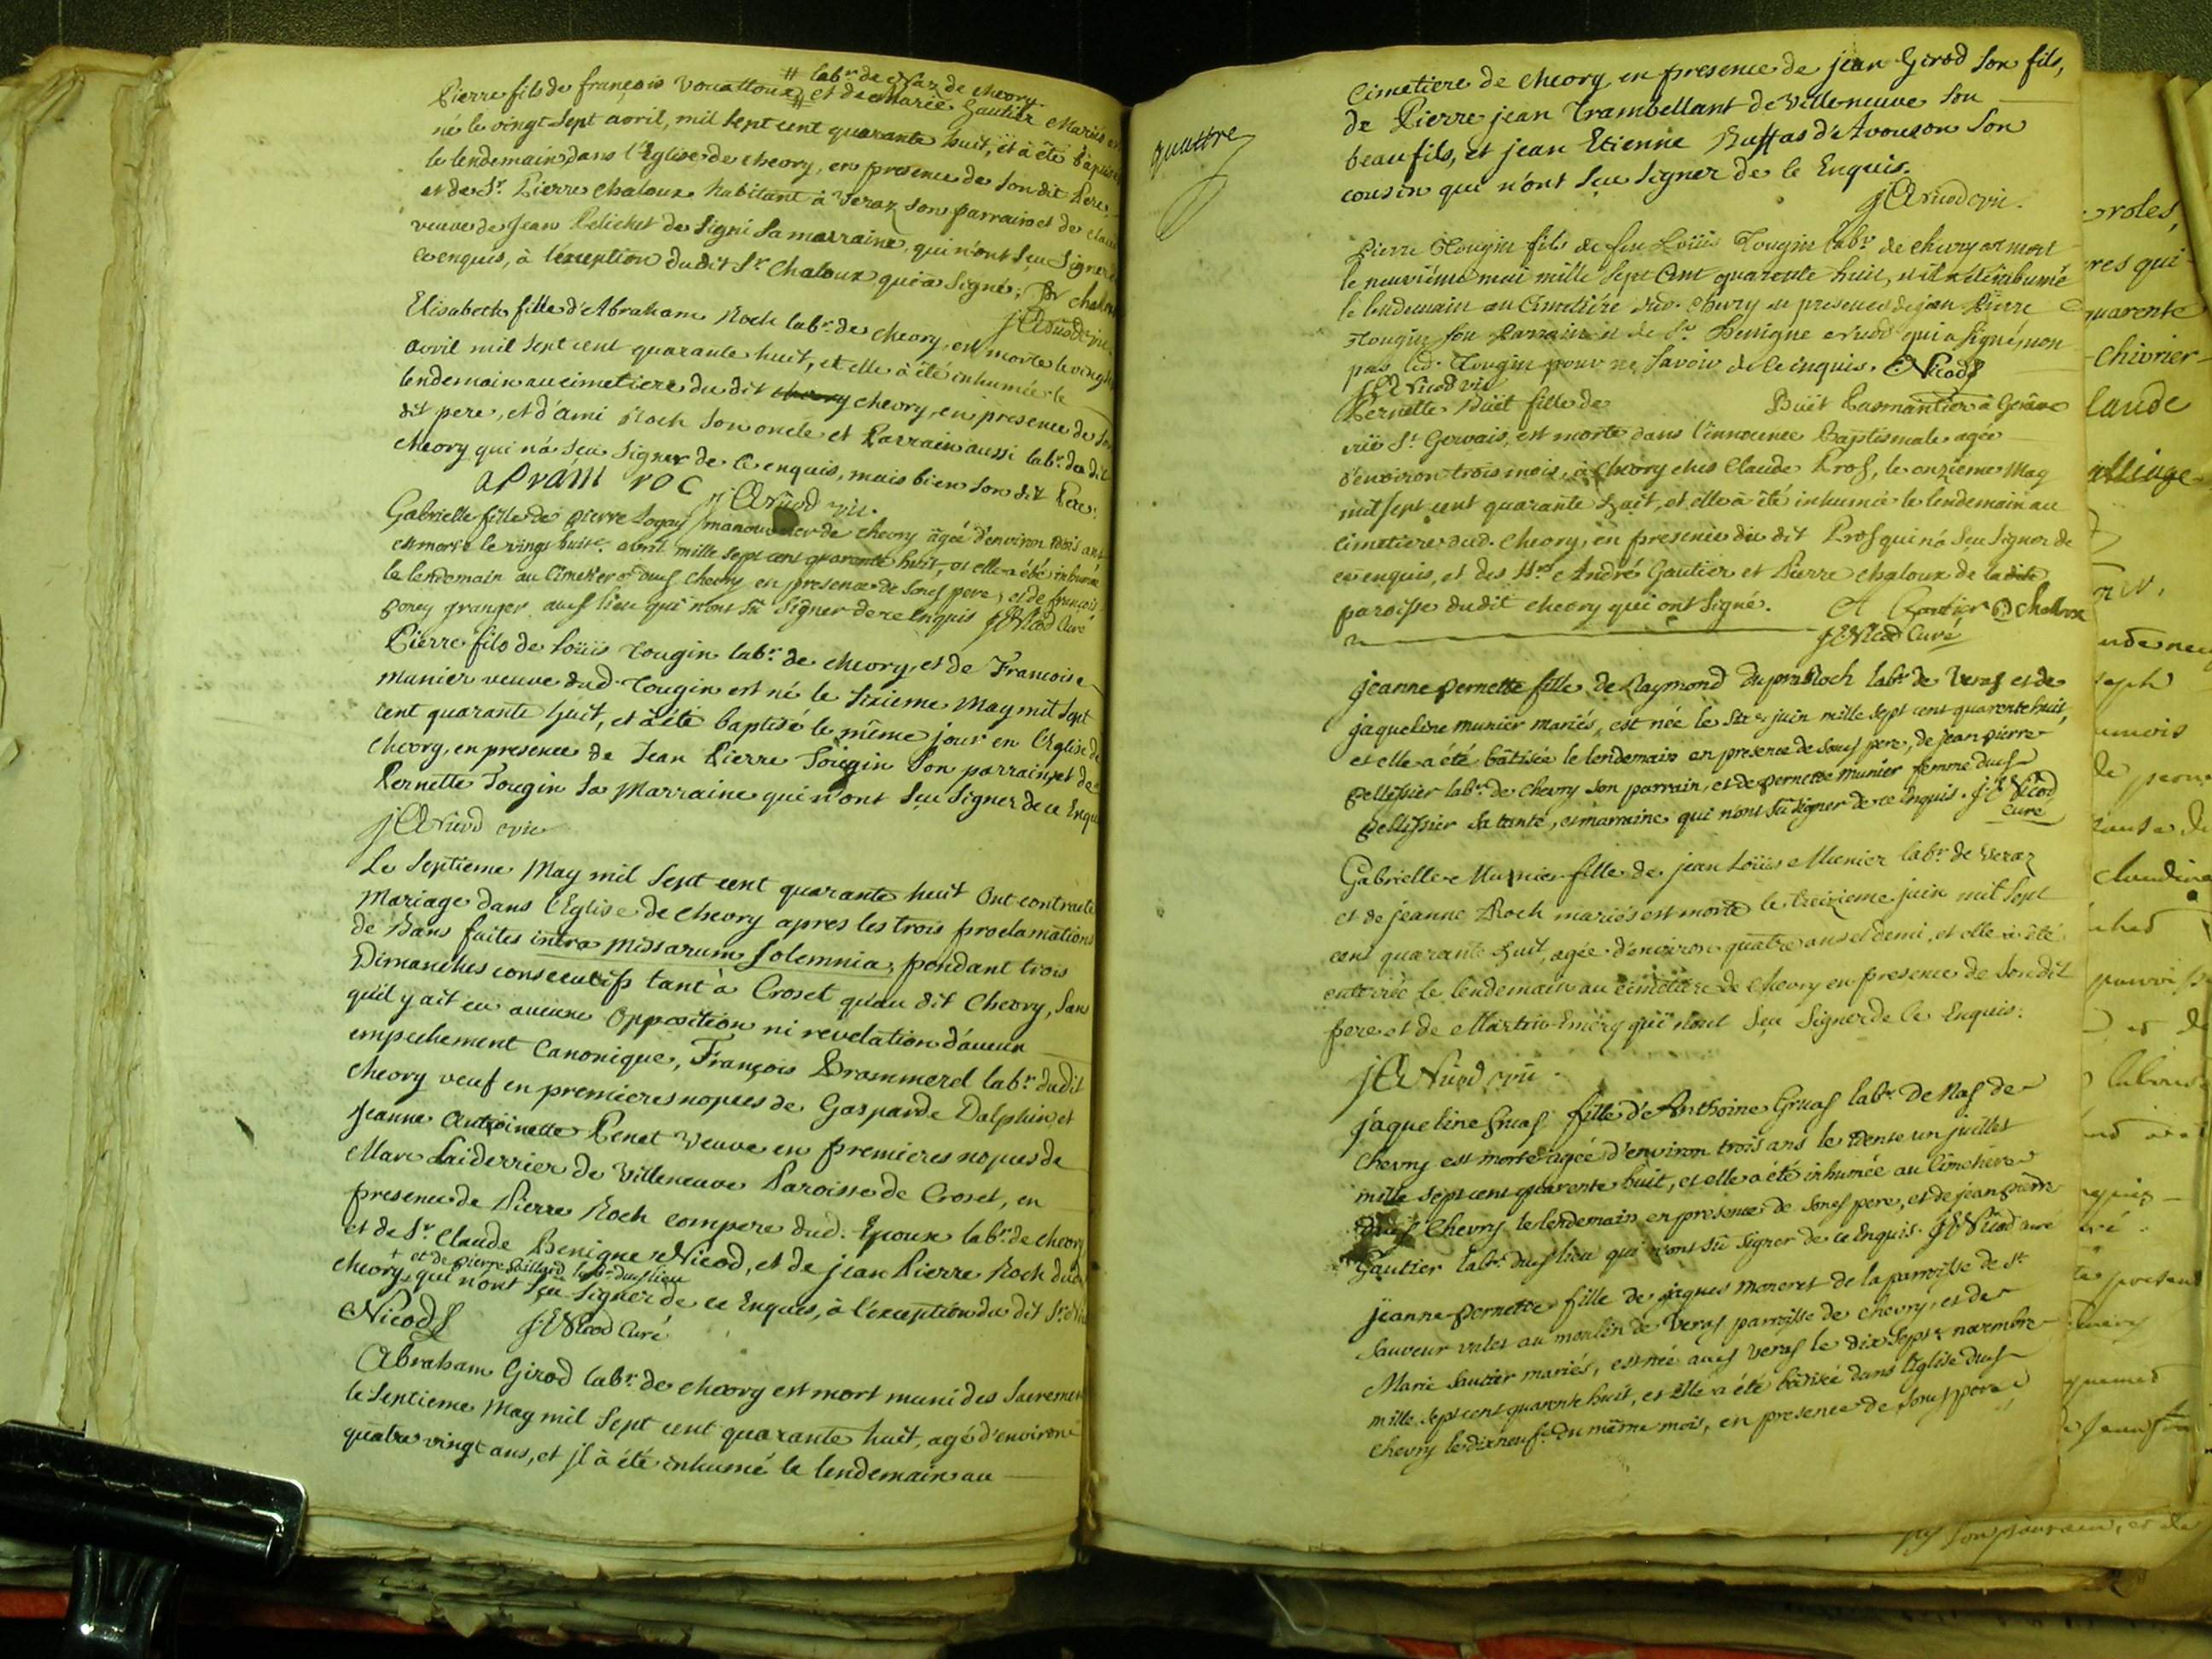 # labr. de Naz de chevry.
Pierre fils de françois Vouattoux # et de Marie Gautier Mariés est
né le vingt sept avril, mil sept cent quarante huit, et à été baptisé
le lendemain, dans l'Eglise de chevry, en presence de son dit Pere,
et de Sr. Pierre chaloux habitant à Veraz son parrain et de
veuve de Jean Pelichet de Signi sa marraine, qui n'ont sçu signer
ce enquis, à l'exception du dit Sr. Chaloux qui a signé;
Elisabeth fille d'Abraham Roch labr. de chevry, est morte le vingt
avril mil sept cent quarante huit, et elle à été inhumée le
lendemain au cimetiere du dit chevry, en presence de son
dit pere, et d'ami Roch son oncle et Parrain aussi labr. du dit
chevry qui n'a sçu signer de ce enquis, mais bien son dit Pere.
aPram roc
Gabrielle fille de pierre Logay manouvrier de chevry âgée d'environ trois ans
est morte le vingt huite. avril mille sept cent quarante huit, et elle a été inhumée
le lendemain au Cimetiere dud chevry en presence de sond pere, et de françois
gorey granger aud lieu qui n'ont sû signer de ce enquis J:C Nicod Curé
Pierre fils de Loüis Tougin labr. de chevry, et de Francoise
Munier veuve dud. Tougin est né le sixieme May mil sept
cent quarante huit, et à été baptisé le même jour en l'Eglise de
chevry, en presence de Jean Pierre Tougin son parrain, et de
Pernette Tougin sa Marraine qui n'ont sçu signer de ce Enquis
Le septieme May mil sept cent quarante huit Ont contracté
Mariage dans l'Eglise de chevry apres les trois proclamations
de Bans faites intra Missarum Solemnia, pendant trois
Dimanches consecutifs tant à Croset qu'au dit Chevry, sans
qu'il y ait eu aucune Opposition ni revelation d'aucun
empechement Canonique, François Brammerel labr. dudit
chevry veuf en premieres nopces de Gasparde Dalphin et
Jeanne Antoinette Penet Veuve en premieres nopces de
Marc Laiderrier de Villeneuve Paroisse de Croset, en
presence de Pierre Roch compere dud. Epoux labr. de chevry
et de Sr. Claude Benigne Nicod, et de jean Pierre Roch dud
+ et de pierre Billard labr. dud lieu
chevry + qui n'ont sçu signer de ce Enquis, à l'exception du dit Sr. Nicod
Nicod J:C Nicod Curé
Abraham Girod labr. de chevry est mort muni des Sacremens
le septieme May mil sept cent quarante huit, agé d'environ
quatre vingt ans, et jl à été inhumé le lendemain au
quattre
Cimetiere de chevry, en presence de jean Girod son fils,
de Pierre jean Trambellant de Villeneuve son
beaufils, et jean Etienne Buffas d'Avouson son
cousin qui n'ont sçu signer de le Enquis.
Pierre Tougin fils de feu Loüis Tougin labr. de chevry est mort
le neuvième mai mille sept Cent quarente huit, et il a été inhumé
le lendemain au Cimetiére dud. chevry en presence de jean Pierre
Tougin son Parrain et de Sr. Benigne Nicod qui a signé, non
pas led. Tougin pour ne savoir de ce enquis. Nicod
Pernette Buët fille de Buët Pasmantier à Genève
ruë St Gervais, est morte dans l'innocence Baptismale agée
d'environ trois mois, à Chevry ches Claude Pros, le onzieme May
mil sept cent quarante huit, et elle à été inhumée le lendemain au
cimetiere dud. chevry, en presence du dit Pros qui n'a sçu signer de
ce enquis, et des Srs André Gautier et Pierre chaloux de la dite
paroisse du dit chevry qui ont signé. A Gautier P challoux
J:C Nicod Curé
jeanne pernette fille de Raymond dupra Roch labr. de Veras et de
jaqueline munier mariés, est née le six e. juin mille sept cent quarente huit,
et elle a été bâtisée le lendemain en presence de soud pere, de jean pierre
pellissier labr. de chevry son parrain, et de pernette munier femme dud
pellissier sa tante, et marraine qui n'ont sû signer de ce enquis. J:C Nicod
curé
Gabrielle Munier fille de jean Loüis Munier labr. de Veraz
et de jeanne Roch mariés est morte le treizieme juin mil sept
cent quarante huit, agée d'environ quatre ans et demi, et elle à été
enterrée le lendemain au cimetiere de chevry en presence de son dit
pere et de Martin Emery qui n'ont sçu signer de ce Enquis.
jaqueline Gruas fille d'Anthoine Gruas labr. de Nas de
chevry est morte agée d'environ trois ans le trente un juillet
mille sept cent quarente huit, et elle a été inhumée au Cimetiere
dud Chevry le lendemain en presence de soud pere, et de jean pierre
Gautier labr. dud lieu qui n'ont sû signer de ce enquis. J:C Nicod curé
jeanne pernette fille de jaques moneret de la parroisse de st
sauveur valet au moulin de Veras parroisse de chevry, et de
Marie sautier mariés, est née aud veras le dix sept e. novembre
mille sept cent quarente huit, et elle a été bâtisée dans l'Eglise dud
chevry le dix neuf e. du même mois, en presence de soud pere
roles,
res qui
quarente
chivrier
laude